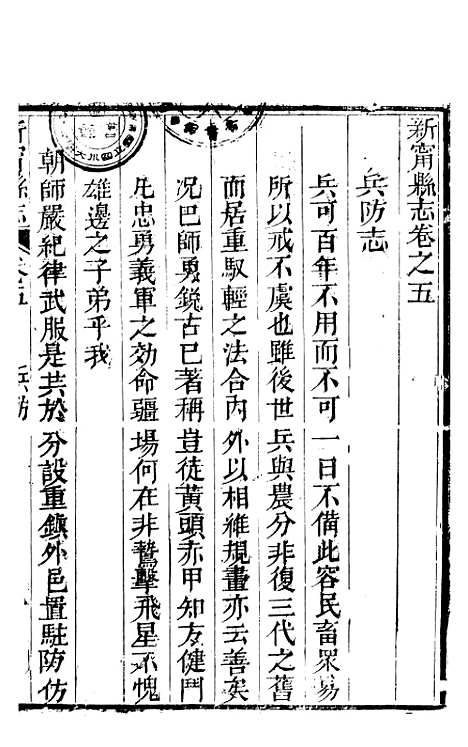 新甯縣志卷之五
兵防志
兵可百年不用而不可一日不備此容民畜眾易
所以戒不虞也雖後世兵與農分非復三代之舊
而居重馭輕之法合內外以相維規畫亦云善矣
况巴師勇銳古已著稱豈徒黃頭赤甲知方健鬥
凡忠勇義軍之効命疆場何在非鷙擊飛星不愧
雄邊之子弟乎我
朝師嚴紀律武服是共於分設重鎮外邑置駐防仿
新甯縣志 卷五 兵防